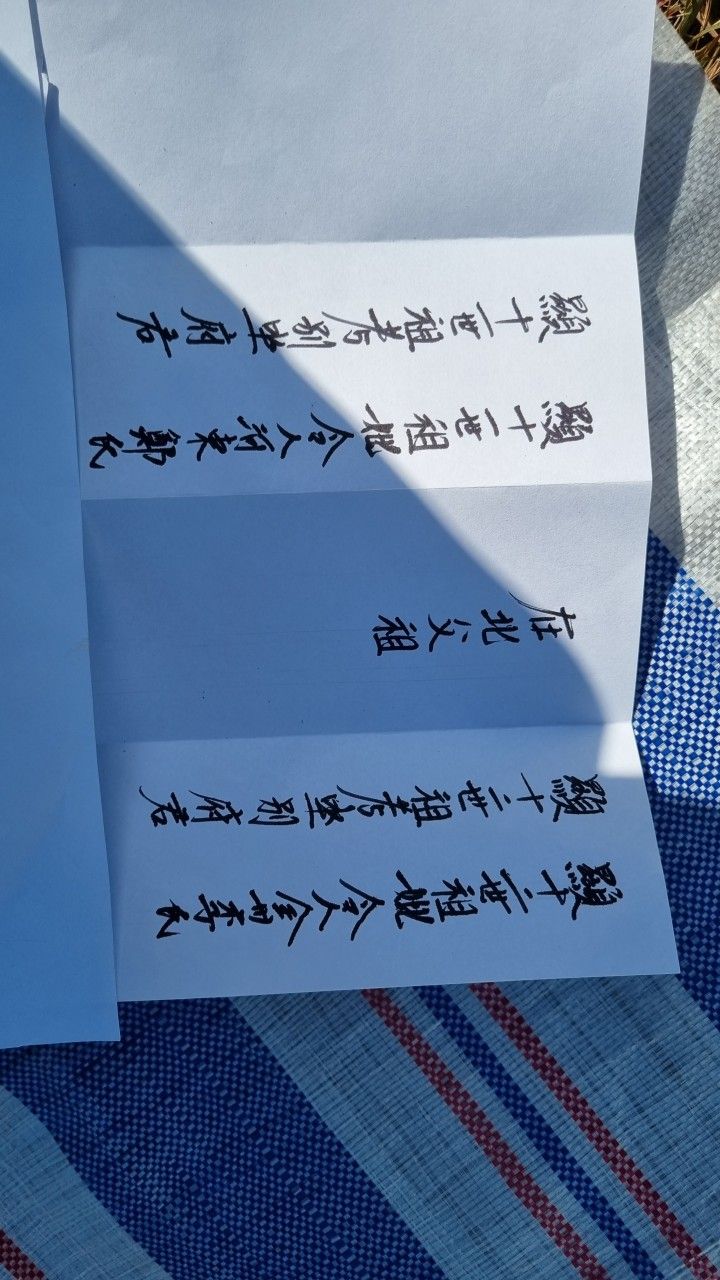 顯十二世祖妣令人全州李氏
顯十二世祖考坐別府君
在北父祖
顯十一世祖妣令人河東鄭氏
顯十一世祖考別坐府君